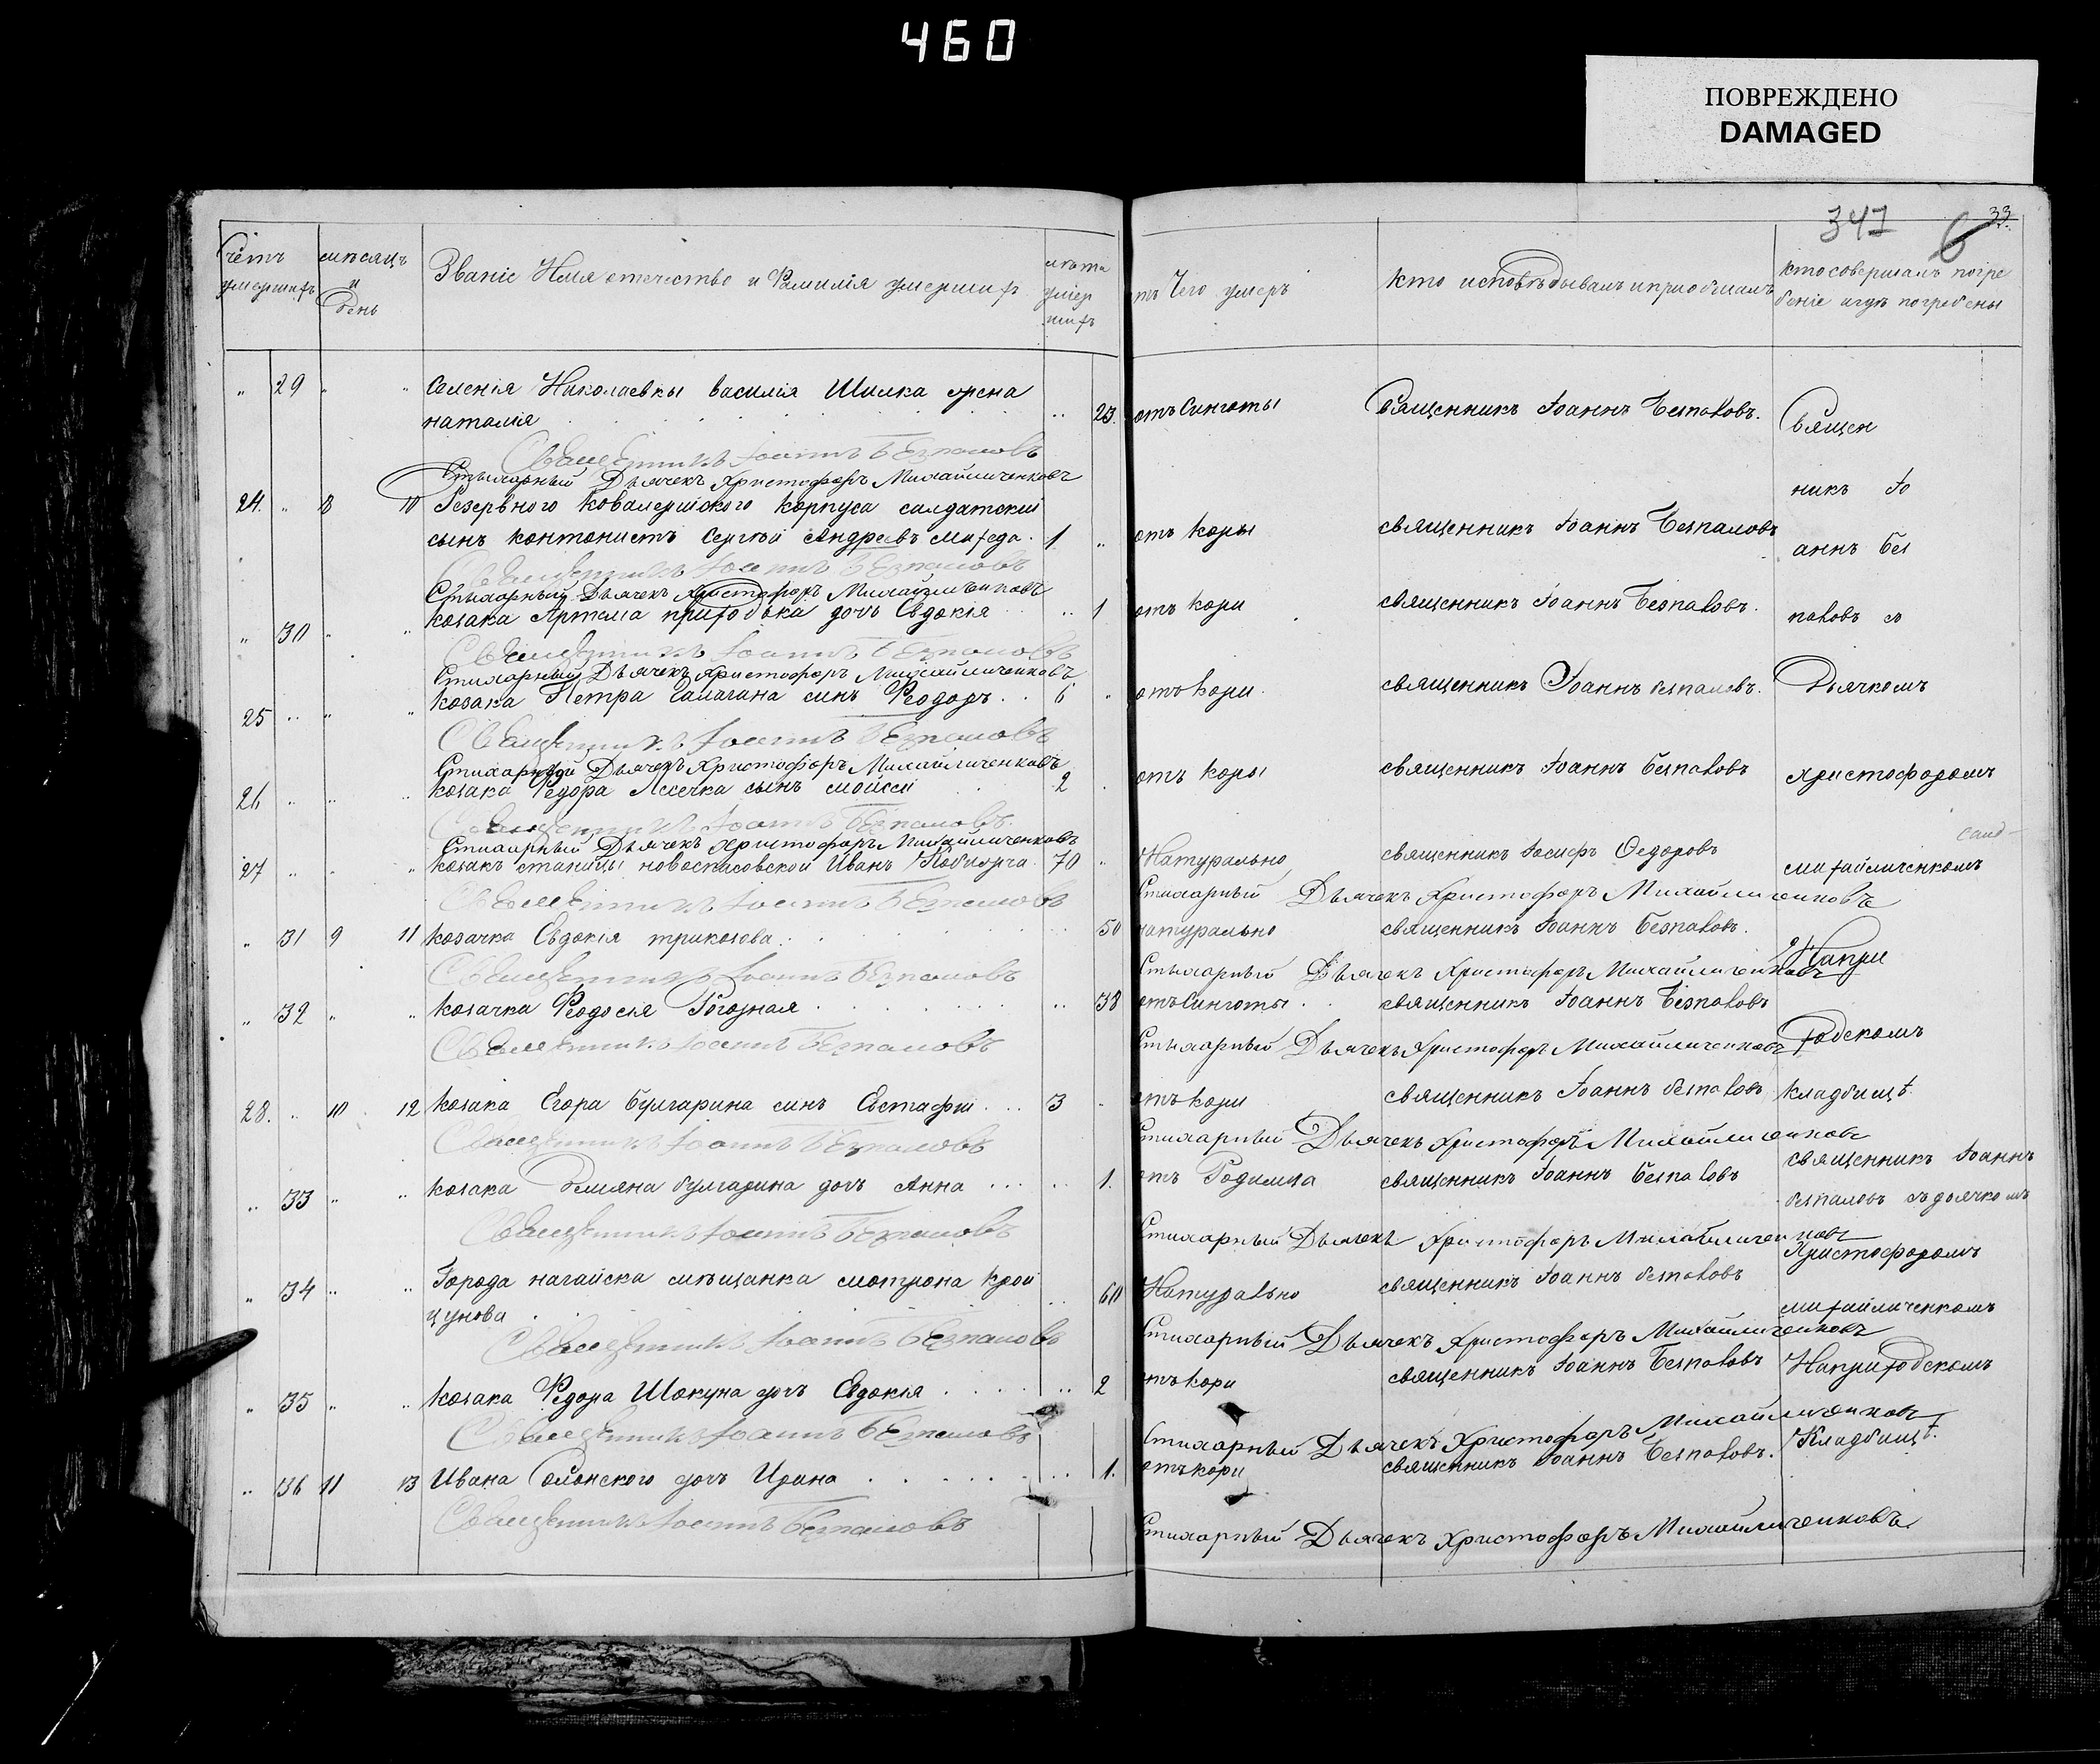 460
ПОВРЕЖДЕНО
DAMAGED
347 6 33.
Счетъ умершихъ
мѣсяцъ и день
Званіе Имя отечество и Фамилія умершихъ
лѣта умершихъ
отъ Чего умеръ
кто исповѣдывалъ и приобщалъ
кто совершалъ погребеніе и гдѣ погребены
" 29 " " Селенія Николаевки василія Шилка жена
наталія .. 23. отъ Синготы Священникъ Іоаннъ Безпаловъ. Священ
Священникъ Іоаннъ Безпаловъ
Стихарный Дьячекъ Христофоръ Михайличенковъ
никъ Іо
24. " 8 10 Резервного ковалерійского корпуса салдатскій
сынъ контонистъ Сергѣй Андреевъ 1 " отъ коры священникъ Іоаннъ Безпаловъ
аннъ Без
Священникъ Іоаннъ Безпаловъ
Стихарный Дьячекъ Христофоръ Михайличенковъ
" 30 " " козака Артема приходька дочь Евдокія .. 1 отъ кори священникъ Іоаннъ Безпаловъ.
паловъ съ
Священникъ Іоаннъ Безпаловъ
Стихарный Дьячекъ Христофоръ Михайличенковъ
25 " " " козака Петра Салагана синъ Феодоръ 6 " отъ кори. священникъ Іоаннъ безпаловъ. Дьячкомъ
Священникъ Іоаннъ Безпаловъ
Стихарный Дьячекъ Христофоръ Михайличенковъ
26 " " " козака Федора сынъ моисей 2 отъ коры священникъ Іоаннъ безпаловъ христофоромъ
Священникъ Іоаннъ Безпаловъ
Стихарный Дьячекъ Христофоръ Михайличенковъ
27 " " " козакъ станицы новоспасовской Иванъ 70 " Натурально священникъ Іосифъ Федоровъ михайличенкомъ
Священникъ Іоаннъ Безпаловъ Стихарный Дьячекъ Христофоръ Михайличенковъ
" 31 9 11 козачка Евдокія трикозова 50 натурально священникъ Іоаннъ безпаловъ.
Напри
Священникъ Іоаннъ Безпаловъ Стихарный Дьячекъ Христофоръ Михайличенковъ
" 32 " " козачка Феодосія Рогозная .. 38 отъ Синготы священникъ Іоаннъ Безпаловъ
ходскомъ
Священникъ Іоаннъ Безпаловъ Стихарный Дьячекъ Христофоръ Михайличенковъ
28. " 10 12 козака Егора булгарина синъ Евстафій 3 отъ кори священникъ Іоаннъ безпаловъ кладбищѣ.
Священникъ Іоаннъ Безпаловъ Стихарный Дьячекъ Христофоръ Михайличенковъ
священникъ Іоаннъ
" 33 " " козака Демяна булгарина дочь Анна .. 1. отъ Родимца священникъ Іоаннъ безпаловъ
безпаловъ съ дьячкомъ
Священникъ Іоаннъ Безпаловъ Стихарный Дьячекъ Христофоръ Михайличенковъ
Христофоромъ
" 34 " " Города нагайска мѣщанка мотрона край
цунова .. 60 Натурально священникъ Іоаннъ безпаловъ
михайличенкомъ
Священникъ Іоаннъ Безпаловъ Стихарный Дьячекъ Христофоръ Михайличенковъ
" 35 " " козака Федора Шокуна дочь Евдокія .. 2 отъ кори священникъ Іоаннъ Безпаловъ Наприходскомъ
Священникъ Іоаннъ Безпаловъ Стихарный Дьячекъ Христофоръ Михайличенковъ
Кладбищѣ.
" 36 11 13 Ивана дочь Ирина .. 1. отъ кори священникъ Іоаннъ Безпаловъ.
Священникъ Іоаннъ Безпаловъ Стихарный Дьячекъ Христофоръ Михайличенковъ